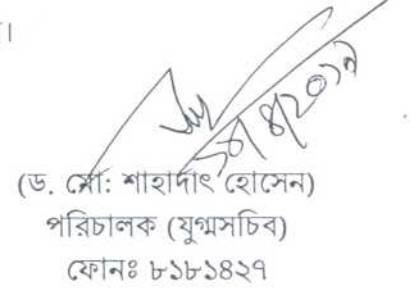 ।
(ড. মো: শাহাদাৎ হোসেন)
পরিচালক (যুগ্মসচিব)
ফোনঃ ৮১৮১৪২৭